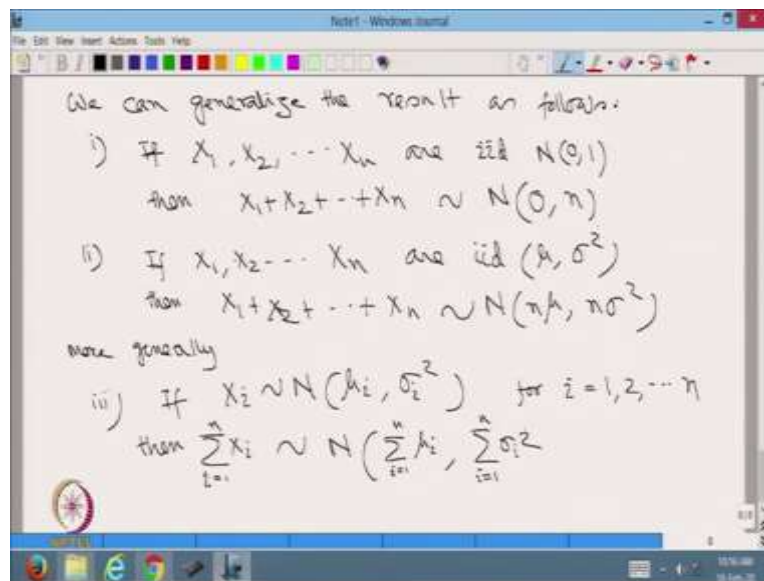 Note1 - Windows Journal
File Edit View Insert Actions Tools Help
We can generalize the result as follows.
i) If X₁, X₂, ... Xₙ are iid N(0,1)
then X₁+X₂+--+Xₙ ~ N(0, n)
ii) If X₁, X₂--- Xₙ are iid (μ, σ²)
then X₁+X₂+--+Xₙ ~ N(nμ, nσ²)
more generally
iii) If Xᵢ ~ N(μᵢ, σᵢ²) for i = 1,2,... n
then ∑ᵢ₌₁ⁿ Xᵢ ~ N(∑ᵢ₌₁ⁿ μᵢ, ∑ᵢ₌₁ⁿ σᵢ²
NPTEL